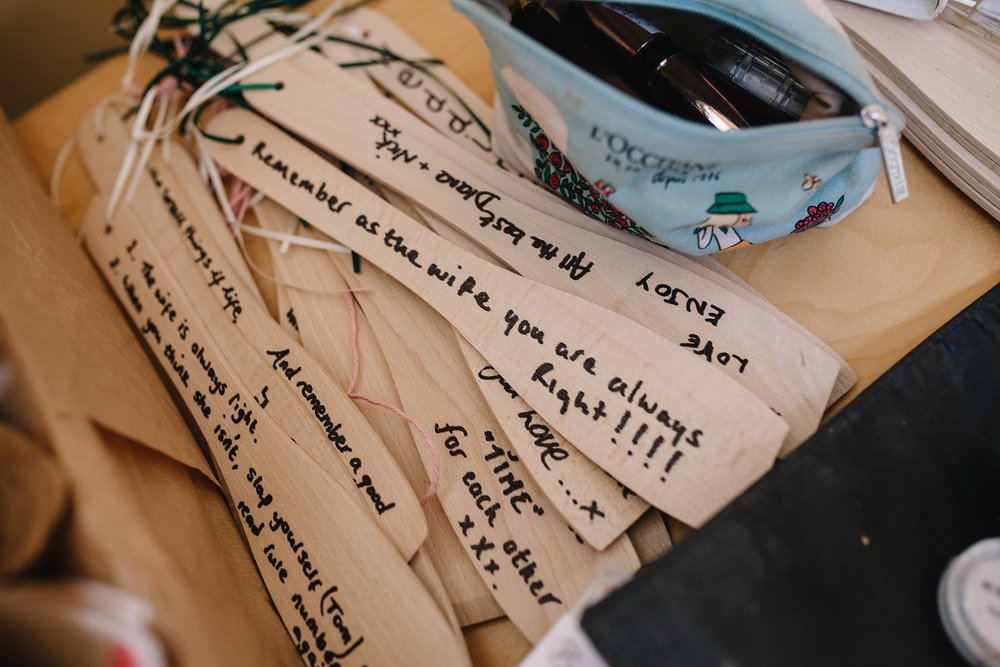 L'OCCITANE
depuis 1976
All the best
Diane + Nick
xxx
LOVE
ENJOY
Remember as the wife you are always
Right!!!!
things of life,
1. The wife is always right.
2. When you think she isn't, slap yourself (Tom)
read rule number
And remember a good
"TIME"
for each other
xxx.
your Love...x